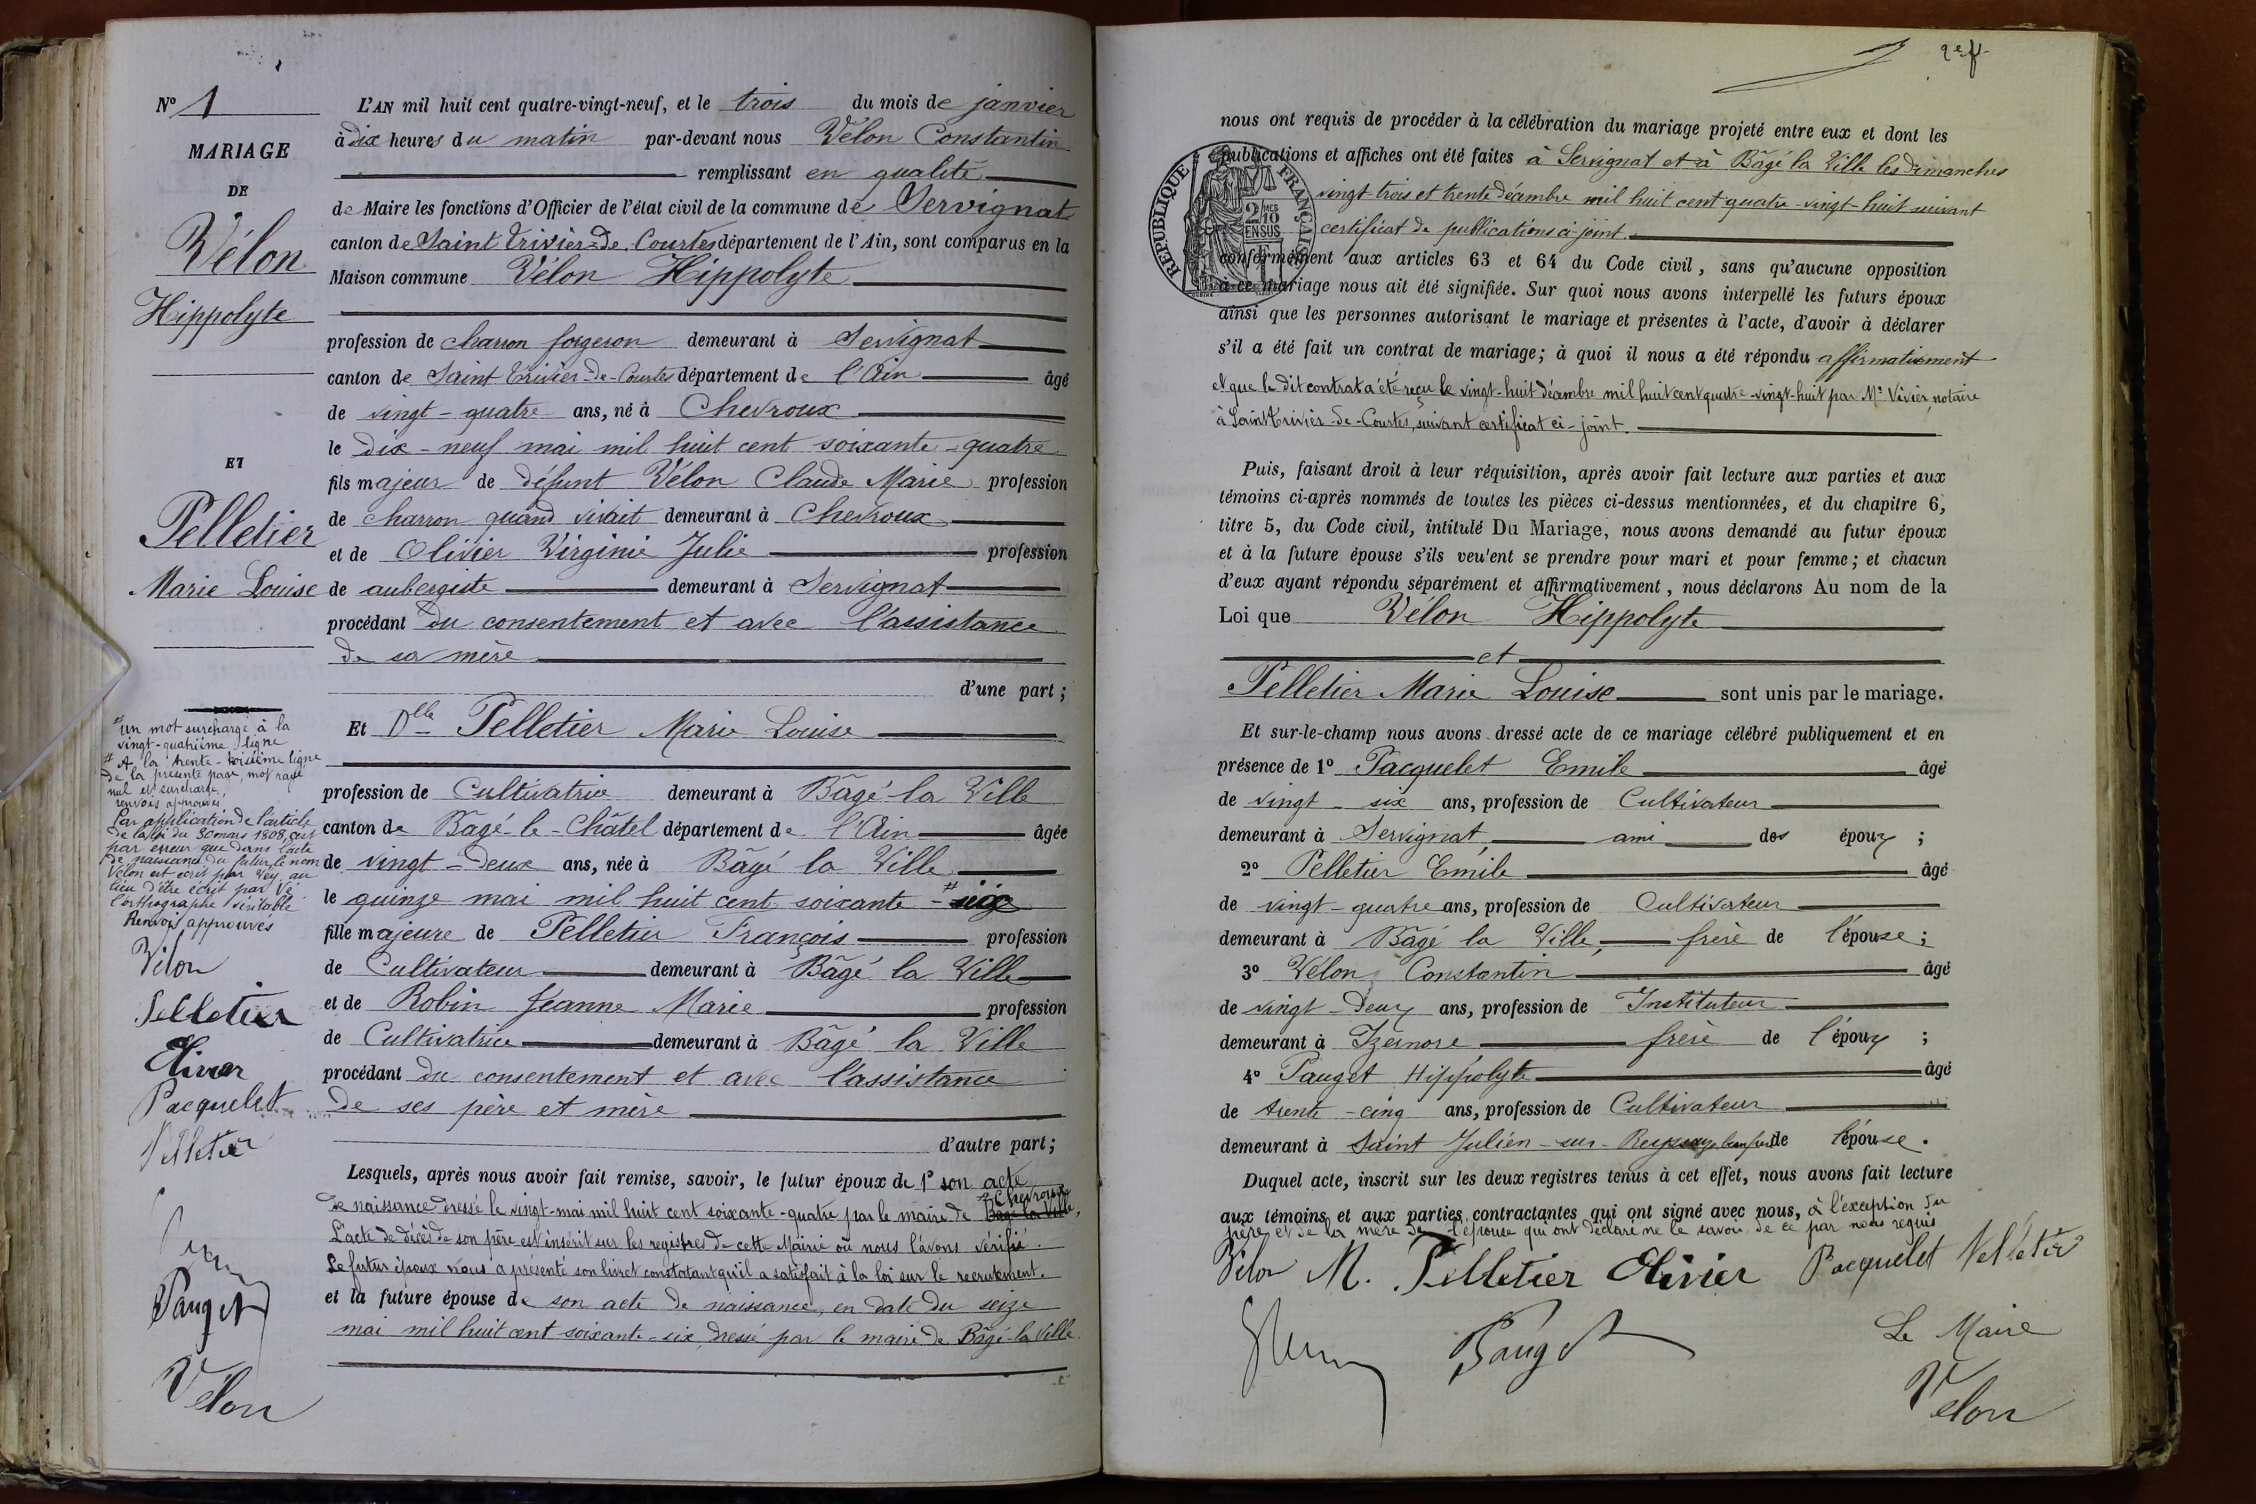 N° 1
MARIAGE
DE
Vélon
Hippolyte
ET
Pelletier
Marie Louise
un mot surchargé à la
vingt-quatrième ligne
A la trente-troisième ligne
de la présente page, mot rayé
nul et surchargé,
renvois approuvés
Par application de l'article
de la loi du 30 mars 1808, c'est
par erreur que dans l'acte
de naissance du futur, le nom
Vélon est écrit par Vey au
lieu d'être écrit par Vé
l'orthographe véritable
Renvois approuvés
Vélon
Pelletier
Olivier
Pacquelet
Pelletier
Pauget
Vélon
L'AN mil huit cent quatre-vingt-neuf, et le trois du mois de janvier
à dix heures du matin par-devant nous Vélon Constantin
remplissant en qualité
de Maire les fonctions d'Officier de l'état civil de la commune de Servignat
canton de Saint Trivier-de-Courtes département de l'Ain, sont comparus en la
Maison commune Vélon Hippolyte
profession de charron forgeron demeurant à Servignat
canton de Saint Trivier-de-Courtes département de l'Ain âgé
de vingt-quatre ans, né à Chevroux
le dix-neuf mai mil huit cent soixante-quatre
fils majeur de défunt Vélon Claude Marie profession
de charron quand vivait demeurant à Chevroux
et de Olivier Virginie Julie profession
de aubergiste demeurant à Servignat
procédant du consentement et avec l'assistance
de sa mère
d'une part;
Et Dlle Pelletier Marie Louise
profession de Cultivatrice demeurant à Bâgé la Ville
canton de Bâgé-le-Châtel département de l'Ain âgée
de vingt-deux ans, née à Bâgé la Ville
le quinze mai mil huit cent soixante-six
fille majeure de Pelletier François profession
de Cultivateur demeurant à Bâgé la Ville
et de Robin Jeanne Marie profession
de Cultivatrice demeurant à Bâgé la Ville
procédant du consentement et avec l'assistance
de ses père et mère
d'autre part;
Lesquels, après nous avoir fait remise, savoir, le futur époux de 1° son acte
Chevroux
de naissance dressé le vingt-mai mil huit cent soixante-quatre par le maire de Bâgé la Ville,
L'acte de décès de son père est inscrit sur les registres de cette Mairie où nous l'avons vérifié.
Le futur époux nous a présenté son livret constatant qu'il a satisfait à la loi sur le recrutement.
et la future épouse de son acte de naissance, en date du seize
mai mil huit cent soixante-six, dressé par le maire de Bâgé-la Ville.
2e f
nous ont requis de procéder à la célébration du mariage projeté entre eux et dont les
publications et affiches ont été faites à Servignat et à Bâgé la Ville les dimanches
vingt trois et trente décembre mil huit cent quatre-vingt-huit suivant
certificat de publications ci-joint.
RÉPUBLIQUE FRANÇAISE
2/10
EN SUS
conformément aux articles 63 et 64 du Code civil, sans qu'aucune opposition
à ce mariage nous ait été signifiée. Sur quoi nous avons interpellé les futurs époux
ainsi que les personnes autorisant le mariage et présentes à l'acte, d'avoir à déclarer
s'il a été fait un contrat de mariage; à quoi il nous a été répondu affirmativement
et que le dit contrat a été reçu le vingt-huit décembre mil huit cent quatre-vingt-huit par Me Vivier, notaire
à Saint Trivier-de-Courtes, suivant certificat ci-joint.
Puis, faisant droit à leur réquisition, après avoir fait lecture aux parties et aux
témoins ci-après nommés de toutes les pièces ci-dessus mentionnées, et du chapitre 6,
titre 5, du Code civil, intitulé Du Mariage, nous avons demandé au futur époux
et à la future épouse s'ils veu'ent se prendre pour mari et pour femme; et chacun
d'eux ayant répondu séparément et affirmativement, nous déclarons Au nom de la
Loi que Vélon Hippolyte
et
Pelletier Marie Louise sont unis par le mariage.
Et sur-le-champ nous avons dressé acte de ce mariage célébré publiquement et en
présence de 1° Pacquelet Emile âgé
de vingt six ans, profession de Cultivateur
demeurant à Servignat, ami des époux ;
2° Pelletier Emile âgé
de vingt-quatre ans, profession de Cultivateur
demeurant à Bâgé la Ville, frère de l'épouse;
3° Vélon Constantin âgé
de vingt-deux ans, profession de Instituteur
demeurant à Izernore frère de l'époux ;
4° Pauget Hippolyte âgé
de trente-cinq ans, profession de Cultivateur
demeurant à Saint Julien-sur-Reyssouze beau frère de l'épouse.
Duquel acte, inscrit sur les deux registres tenus à cet effet, nous avons fait lecture
aux témoins et aux parties contractantes qui ont signé avec nous, à l'exception du
père et de la mère de l'épouse qui ont déclaré ne le savoir de ce par nous requis
Vélon M. Pelletier Olivier Pacquelet Pelletier
Pauget
Le Maire
Vélon